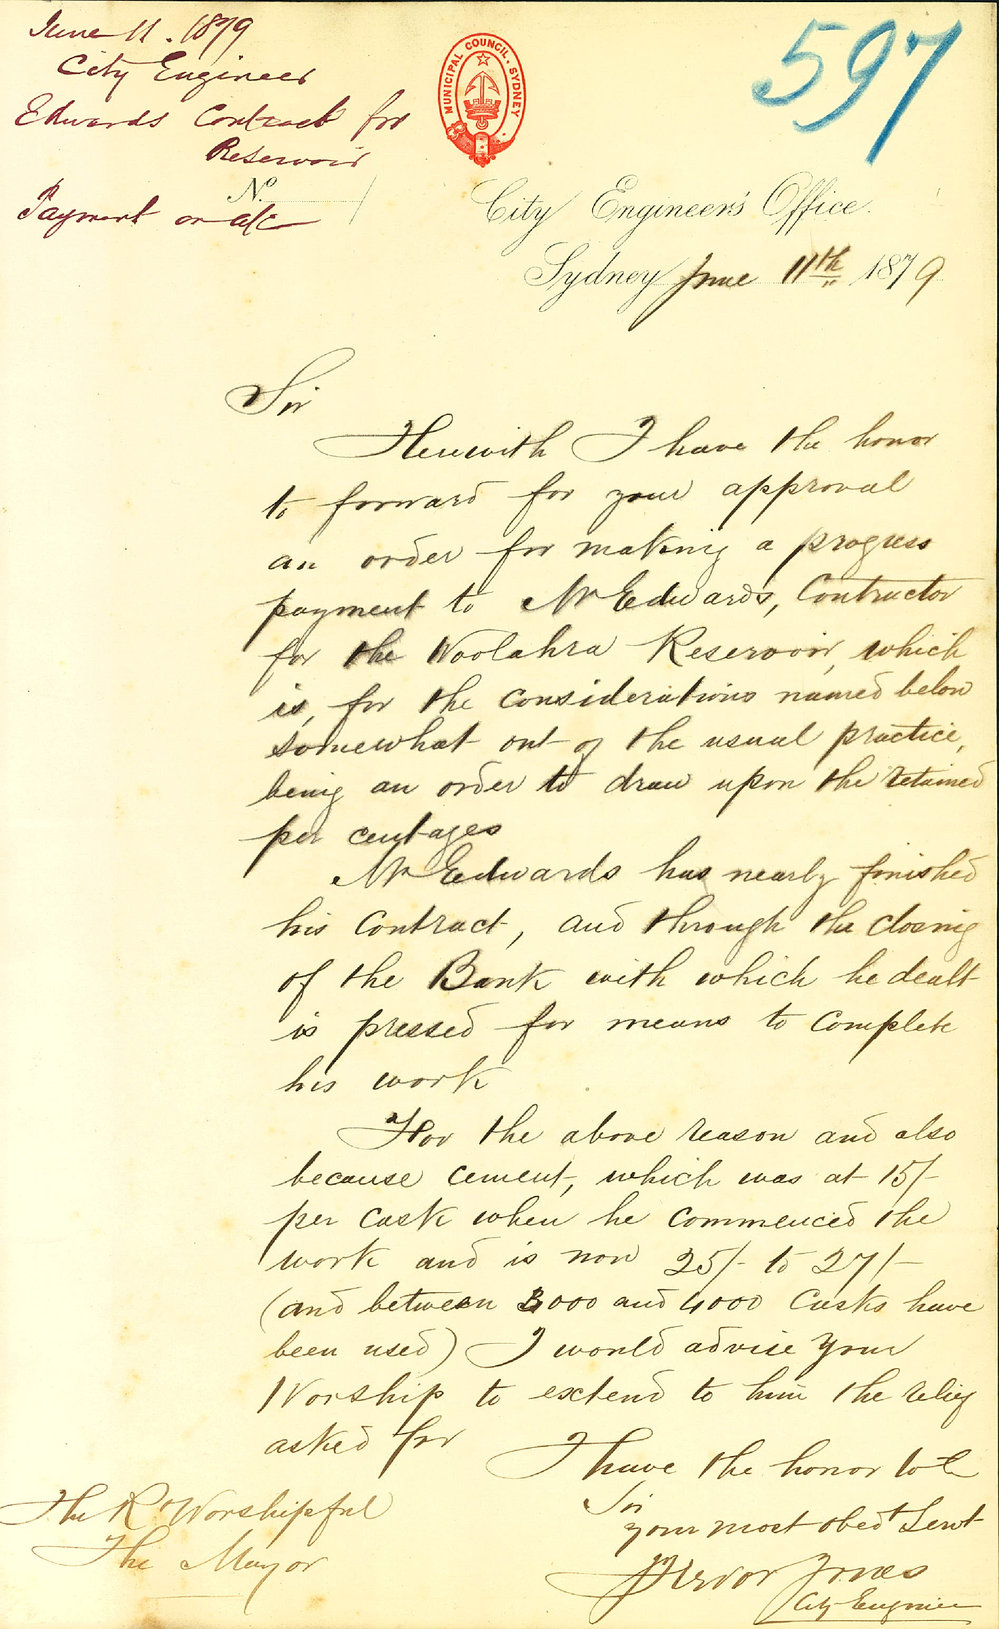 June 11. 1879
City Engineer
Edwards Contract for
Reservoir
No.
Payment on a/c
MUNICIPAL COUNCIL. SYDNEY
597
City Engineer's Office.
Sydney June 11th 1879
Sir
Herewith I have the honor
to forward for your approval
an order for making a progress
payment to Mr Edwards, Contractor
for the Woolahra Reservoir, which
is, for the considerations named below
somewhat out of the usual practice,
being an order to draw upon the retained
per centages
Mr Edwards has nearly finished
his contract, and through the closing
of the Bank with which he dealt
is pressed for means to complete
his work
For the above reason and also
because cement, which was at 15/-
per cask when he commenced the
work and is now 25/- to 27/-
(and between 3000 and 4000 Casks have
been used) I would advise your
Worship to extend to him the relief
asked for
I have the honor to be
Sir
your most obedt Servt
Trevor Jones
City Engineer
The Rt Worshipful
The Mayor